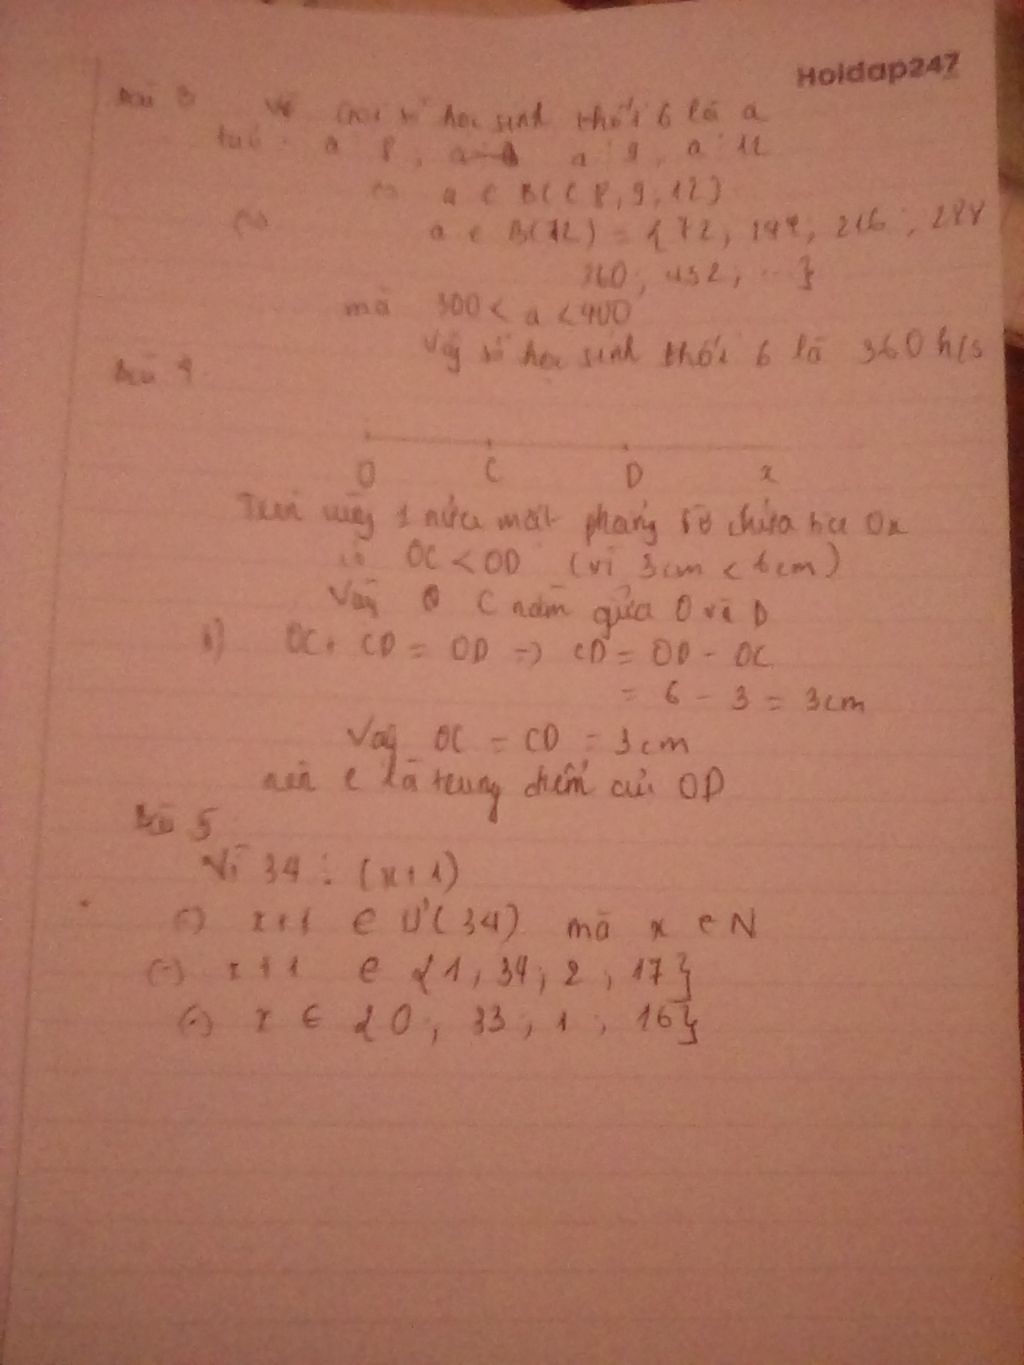 Holdap247
Bài 3 Gọi số học sinh khối 6 là a
a 8, a 9, a 12
a ∈ BC(8, 9, 12)
a ∈ B(72) = {72, 144, 216, 288
360, 432, ...}
mà 300 < a < 400
Vậy số học sinh khối 6 là 360 h/s
Bài 4
O C D x
Trên cùng 1 nửa mặt phẳng bờ chứa tia Ox
có OC < OD (vì 3cm < 6cm)
Vậy C nằm giữa O và D
b) OC + CD = OD => CD = OD - OC
= 6 - 3 = 3cm
Vậy OC = CD = 3cm
nên C là trung điểm của OD
Bài 5
Vì 34 ⋮ (x+1)
(=) x+1 ∈ Ư(34) mà x ∈ N
(=) x+1 ∈ {1, 34, 2, 17}
(=) x ∈ {0, 33, 1, 16}